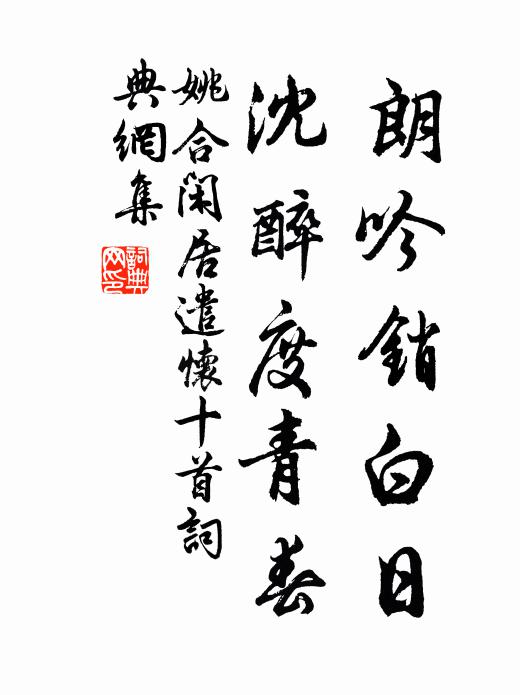 朗吟銷白日
沈醉度青春
姚合閑居遣懷十首詞
典網集
詞典網印